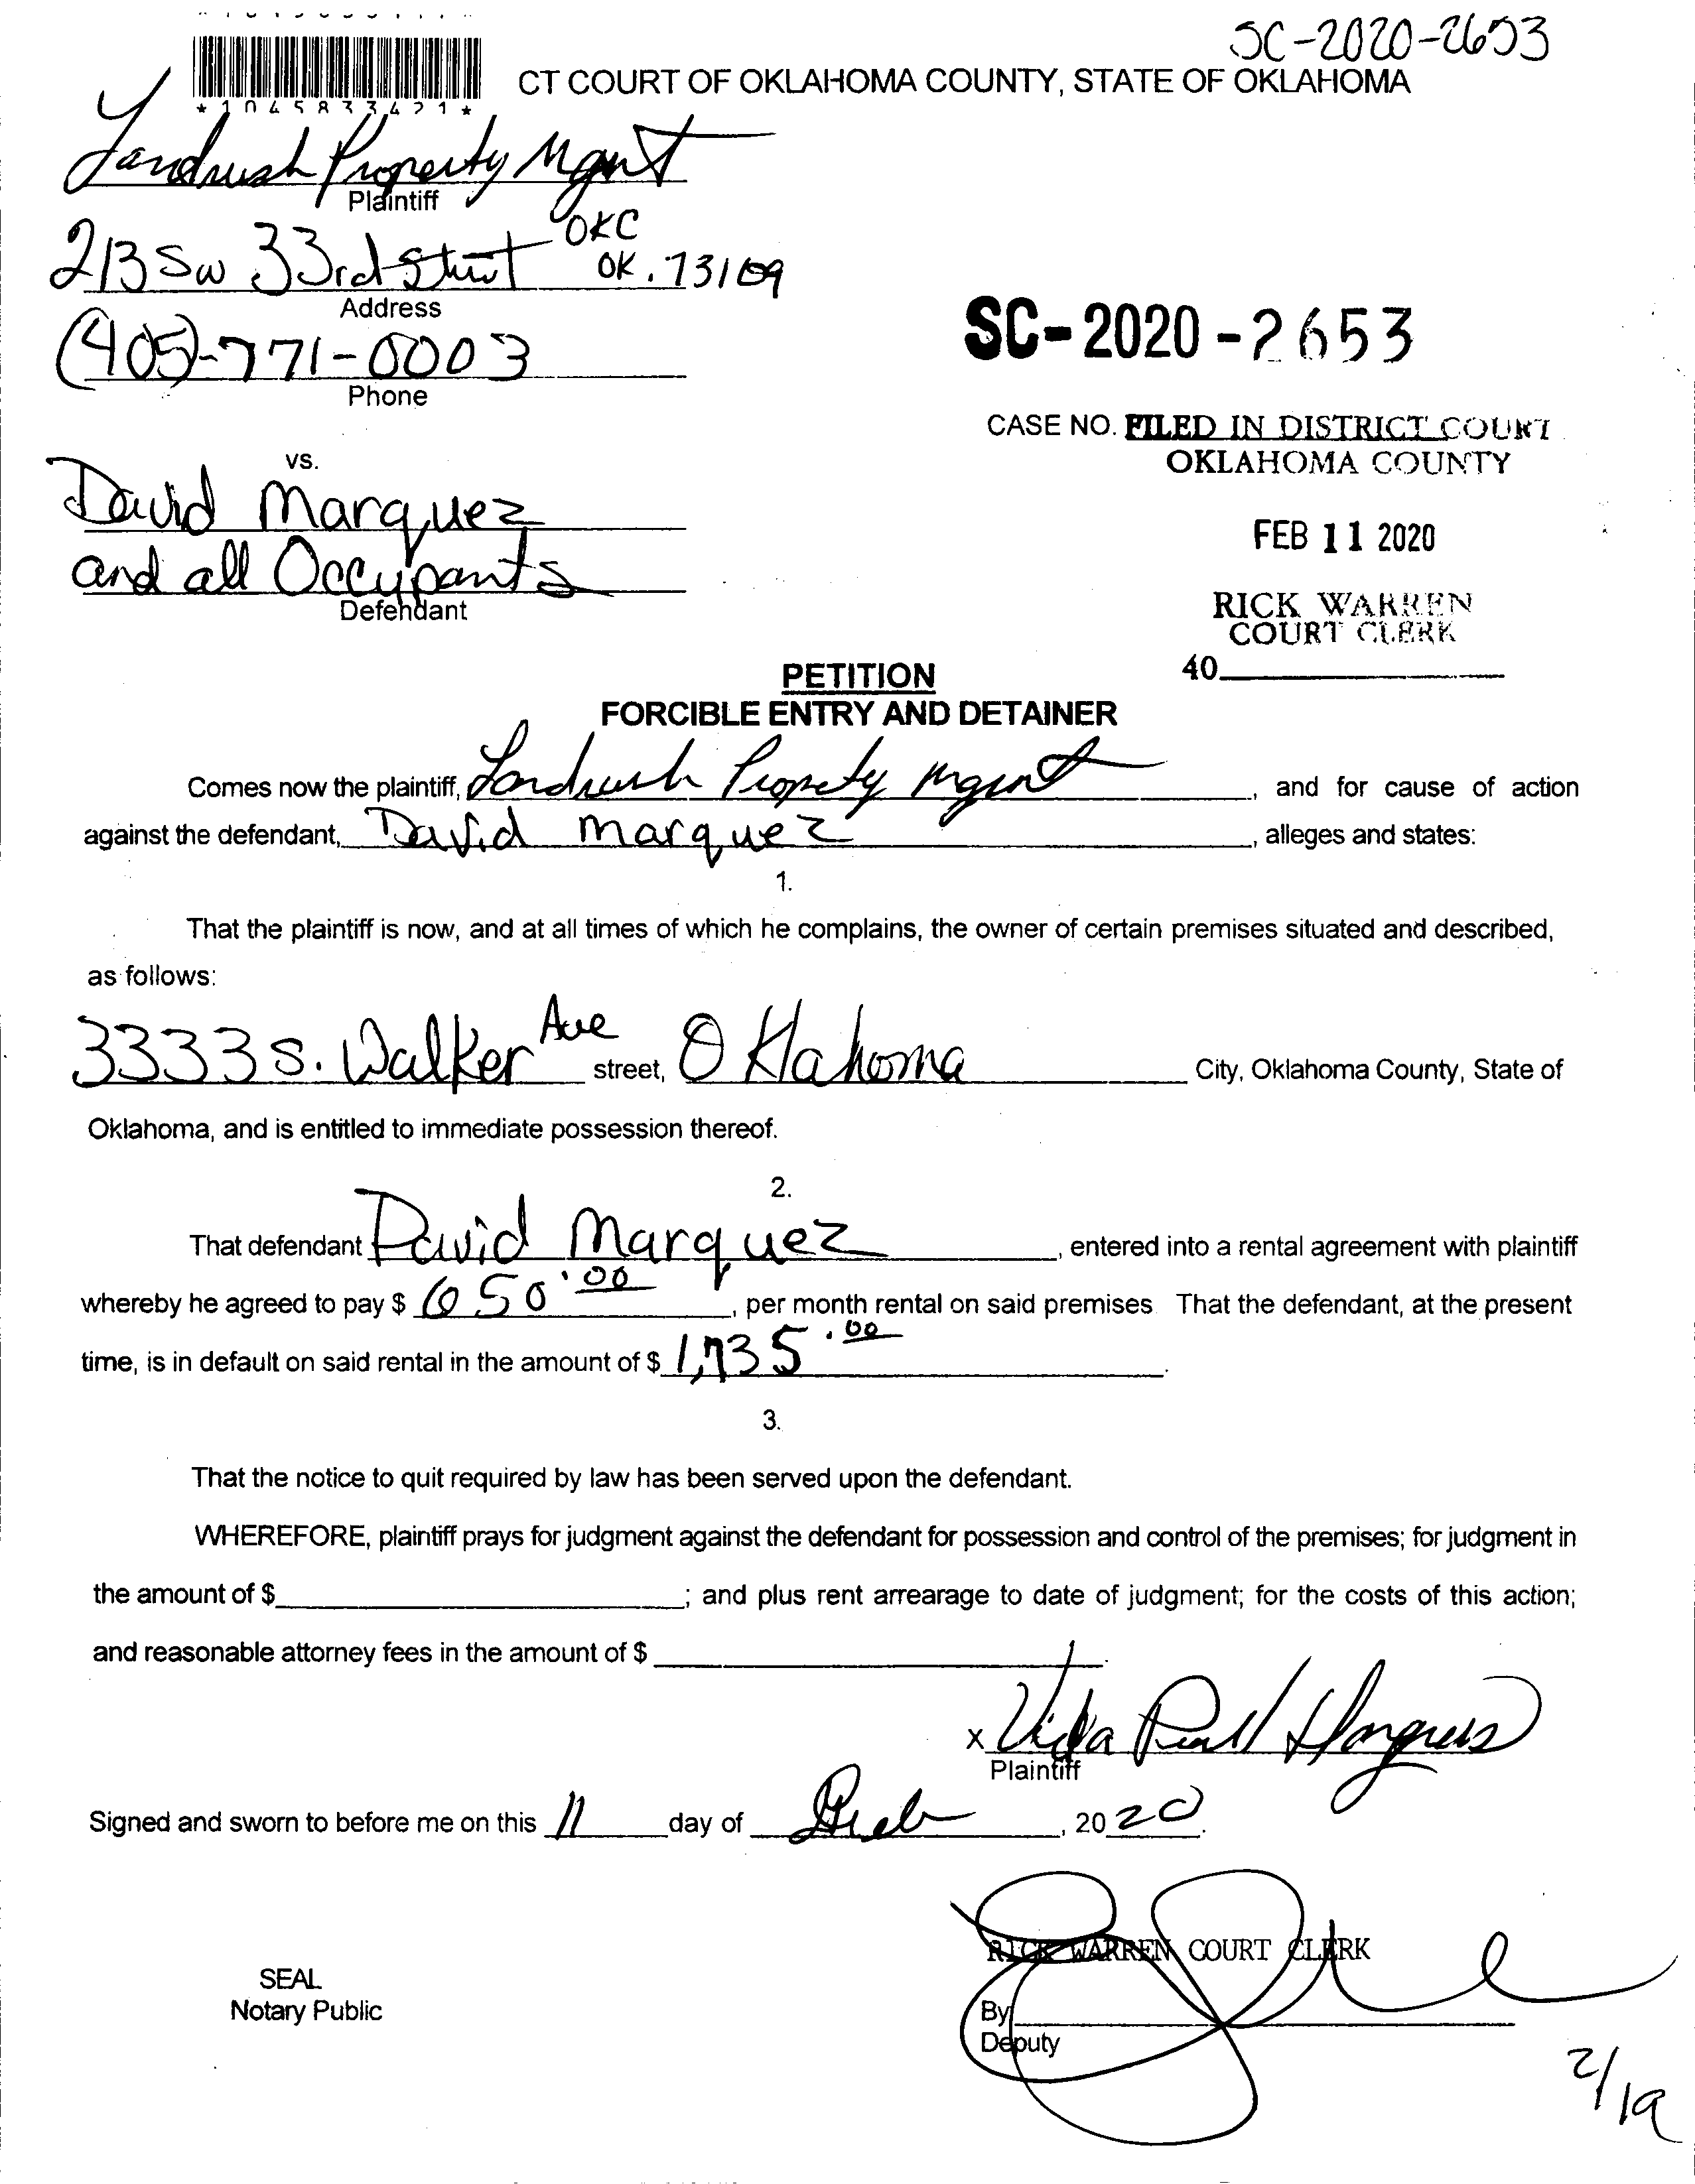 SC-2020-2653
CT COURT OF OKLAHOMA COUNTY, STATE OF OKLAHOMA
*1045833421*
Landrush Property Mgmt
Plaintiff
213 SW 33rd Street OKC
OK. 73109
Address
(405)-771-0003
Phone
SC-2020-2653
CASE NO. FILED IN DISTRICT COURT
OKLAHOMA COUNTY
vs.
David Marquez
FEB 11 2020
and all Occupants
Defendant
RICK WARREN
COURT CLERK
40
PETITION
FORCIBLE ENTRY AND DETAINER
Comes now the plaintiff, Landrush Property Mgmt, and for cause of action
against the defendant, David Marquez, alleges and states:
1.
That the plaintiff is now, and at all times of which he complains, the owner of certain premises situated and described,
as follows:
3333 S. Walker Ave street, Oklahoma City, Oklahoma County, State of
Oklahoma, and is entitled to immediate possession thereof.
2.
That defendant David Marquez, entered into a rental agreement with plaintiff
whereby he agreed to pay $ 650.00, per month rental on said premises. That the defendant, at the present
time, is in default on said rental in the amount of $ 1,735.00.
3.
That the notice to quit required by law has been served upon the defendant.
WHEREFORE, plaintiff prays for judgment against the defendant for possession and control of the premises; for judgment in
the amount of $ ; and plus rent arrearage to date of judgment; for the costs of this action;
and reasonable attorney fees in the amount of $ .
x Vida
Plaintiff
Signed and sworn to before me on this 11 day of Feb, 2020.
RICK WARREN COURT CLERK
SEAL
Notary Public
By
Deputy
2/19